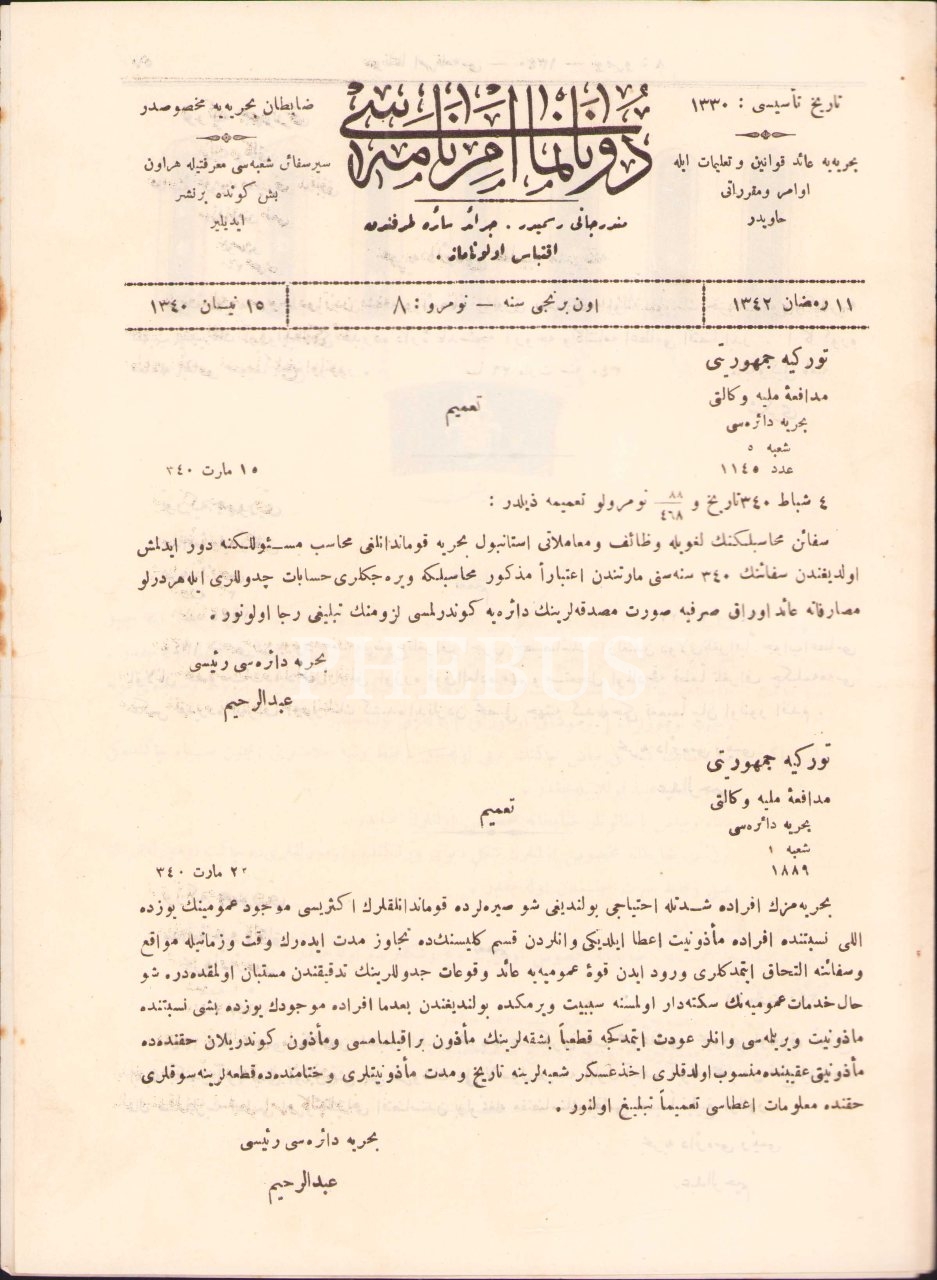 تاریخ تأسیسی : ١٣٣٠
بحریه‌یه عائد قوانین و تعلیمات ایله
اوامر و مقرراتی
حاویدر
دونانما امرنامه‌سی
مندرجاتی رسمیدر . جرائد سائره طرفندن
اقتباس اولوناماز .
ضابطان بحریه‌یه مخصوصدر
سیر سفائن شعبه‌سی معرفتیله هر اون
بش کونده بر نشر
ایدیلیر
١١ رمضان ١٣٤٢
اون برنجی سنه — نومرو : ٨
١٥ نیسان ١٣٤٠
تورکیه جمهوریتی
مدافعهٔ ملیه وکالتی
بحریه دائره‌سی
شعبه ٥
عدد ١١٤٥
تعمیم
١٥ مارت ٣٤٠
٤ شباط ٣٤٠ تاریخ و ٨٨/٤٦٨ نومرولو تعمیمه ذیلدر :
سفائن محاسبلکنك لغویله وظائف ومعاملاتی استانبول بحریه قوماندانلغی محاسب مسئوللکنه دور ایدلمش
اولدیغندن سفائنك ٣٤٠ سنه‌سی مارتندن اعتباراً مذکور محاسبلکه ویره‌جکلری حسابات جدوللری ایله هر درلو
مصارفاته عائد اوراق صرفیه صورت مصدقه‌لرینك دائره‌یه کوندرلمسی لزومنك تبلیغی رجا اولونور .
بحریه دائره‌سی رئیسی
عبدالرحیم
تورکیه جمهوریتی
مدافعهٔ ملیه وکالتی
بحریه دائره‌سی
شعبه ١
١٨٨٩
تعمیم
٢٢ مارت ٣٤٠
بحریه‌مزك افراده شدتله احتیاجی بولندیغی شو صیره‌لرده قوماندانلقلرك اکثریسی موجود عمومینك یوزده
اللی نسبتنده افراده مأذونیت اعطا ایلدیکی وانلردن قسم کلیسنك‌ده تجاوز مدت ایده‌رك وقت وزمانیله مواقع
وسفائنه التحاق ایتمدکلری ورود ایدن قوهٔ عمومیه‌یه عائد وقوعات جدوللرینك تدقیقندن مستبان اولمقده‌در. شو
حال خدمات عمومیه‌نك سکته‌دار اولمسنه سببیت ویرمکده بولندیغندن بعدما افراده موجودك یوزده بشی نسبتنده
ماذونیت ویریله‌سی وانلر عودت ایتمدکجه قطعیاً بشقه‌لرینك مأذون براقیلمامسی ومأذون کوندریلان حقنده‌ده
مأذونیتی عقیبنده منسوب اولدقلری اخذعسکر شعبه‌لرینه تاریخ ومدت مأذونیتلری وختامنده‌ده قطعه‌لرینه سوقلری
حقنده معلومات اعطاسی تعمیماً تبلیغ اولنور .
بحریه دائره‌سی رئیسی
عبدالرحیم
THEBUS